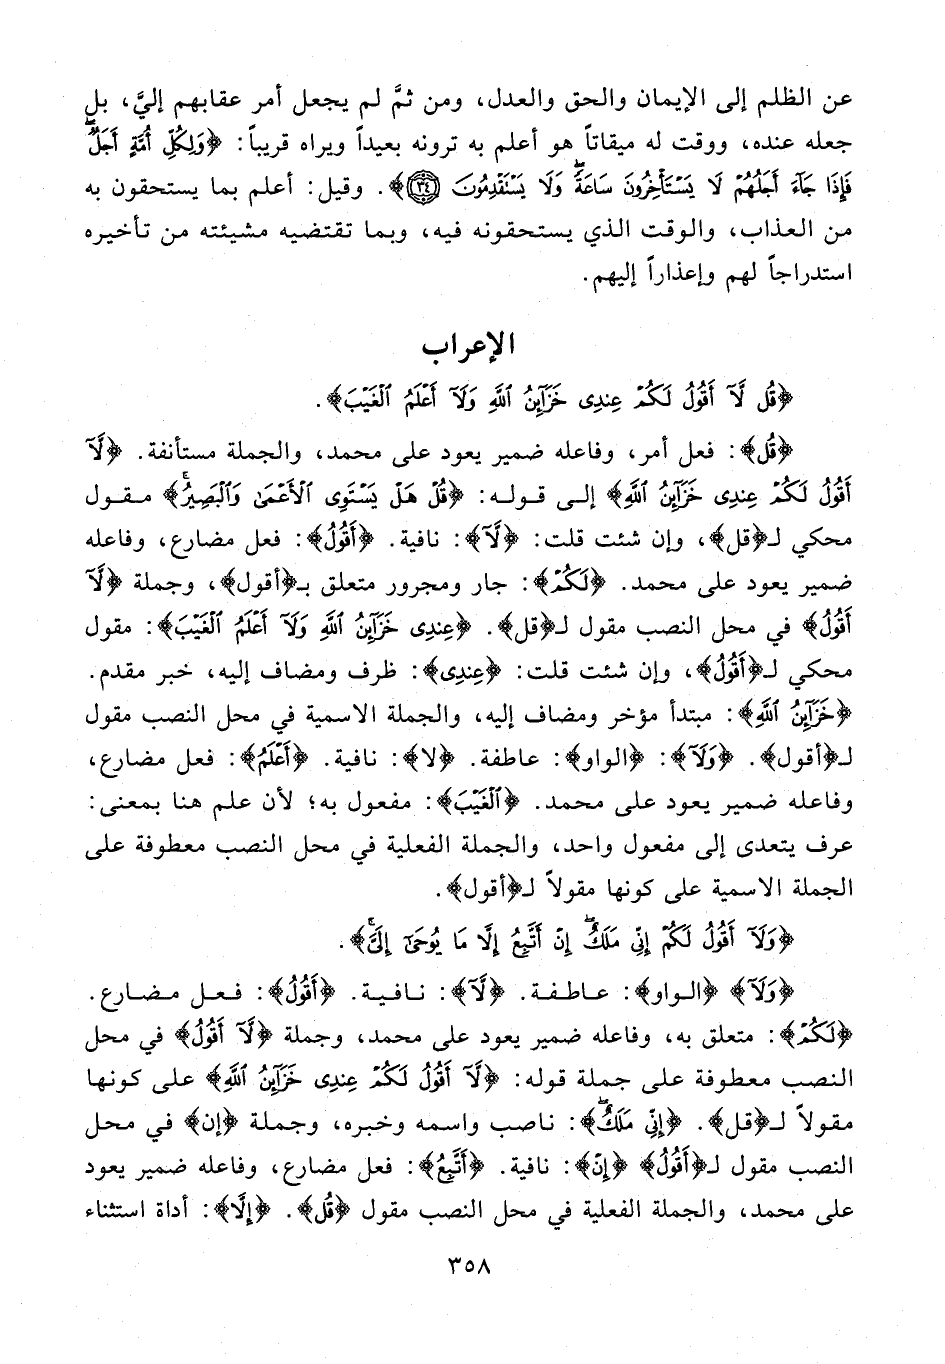 عن الظلم إلى الإيمان والحق والعدل، ومن ثمَّ لم يجعل أمر عقابهم إليَّ، بل
جعله عنده، ووقت له ميقاتاً هو أعلم به ترونه بعيداً ويراه قريباً: ﴿وَلِكُلِّ أُمَّةٍ أَجَلٌۖ
فَإِذَا جَآءَ أَجَلُهُمْ لَا يَسْتَأْخِرُونَ سَاعَةًۖ وَلَا يَسْتَقْدِمُونَ ۝٣٤﴾. وقيل: أعلم بما يستحقون به
من العذاب، والوقت الذي يستحقونه فيه، وبما تقتضيه مشيئته من تأخيره
استدراجاً لهم وإعذاراً إليهم.
الإعراب
﴿قُل لَّآ أَقُولُ لَكُمْ عِندِى خَزَآئِنُ ٱللَّهِ وَلَآ أَعْلَمُ ٱلْغَيْبَ﴾.
﴿قُل﴾: فعل أمر، وفاعله ضمير يعود على محمد، والجملة مستأنفة. ﴿لَّآ
أَقُولُ لَكُمْ عِندِى خَزَآئِنُ ٱللَّهِ﴾ إلى قوله: ﴿قُلْ هَلْ يَسْتَوِى ٱلْأَعْمَىٰ وَٱلْبَصِيرُۚ﴾ مقول
محكي لـ﴿قل﴾، وإن شئت قلت: ﴿لَّآ﴾: نافية. ﴿أَقُولُ﴾: فعل مضارع، وفاعله
ضمير يعود على محمد. ﴿لَكُمْ﴾: جار ومجرور متعلق بـ﴿أقول﴾، وجملة ﴿لَّآ
أَقُولُ﴾ في محل النصب مقول لـ﴿قل﴾. ﴿عِندِى خَزَآئِنُ ٱللَّهِ وَلَآ أَعْلَمُ ٱلْغَيْبَ﴾: مقول
محكي لـ﴿أَقُولُ﴾، وإن شئت قلت: ﴿عِندِى﴾: ظرف ومضاف إليه، خبر مقدم.
﴿خَزَآئِنُ ٱللَّهِ﴾: مبتدأ مؤخر ومضاف إليه، والجملة الاسمية في محل النصب مقول
لـ﴿أقول﴾. ﴿وَلَآ﴾: ﴿الواو﴾: عاطفة. ﴿لا﴾: نافية. ﴿أَعْلَمُ﴾: فعل مضارع،
وفاعله ضمير يعود على محمد. ﴿ٱلْغَيْبَ﴾: مفعول به؛ لأن علم هنا بمعنى:
عرف يتعدى إلى مفعول واحد، والجملة الفعلية في محل النصب معطوفة على
الجملة الاسمية على كونها مقولاً لـ﴿أقول﴾.
﴿وَلَآ أَقُولُ لَكُمْ إِنِّى مَلَكٌۖ إِنْ أَتَّبِعُ إِلَّا مَا يُوحَىٰٓ إِلَىَّۚ﴾.
﴿وَلَآ﴾ ﴿الواو﴾: عاطفة. ﴿لَّآ﴾: نافية. ﴿أَقُولُ﴾: فعل مضارع.
﴿لَكُمْ﴾: متعلق به، وفاعله ضمير يعود على محمد، وجملة ﴿لَّآ أَقُولُ﴾ في محل
النصب معطوفة على جملة قوله: ﴿لَّآ أَقُولُ لَكُمْ عِندِى خَزَآئِنُ ٱللَّهِ﴾ على كونها
مقولاً لـ﴿قل﴾. ﴿إِنِّى مَلَكٌۖ﴾: ناصب واسمه وخبره، وجملة ﴿إن﴾ في محل
النصب مقول لـ﴿أَقُولُ﴾ ﴿إِنْ﴾: نافية. ﴿أَتَّبِعُ﴾: فعل مضارع، وفاعله ضمير يعود
على محمد، والجملة الفعلية في محل النصب مقول ﴿قُل﴾. ﴿إِلَّا﴾: أداة استثناء
٣٥٨